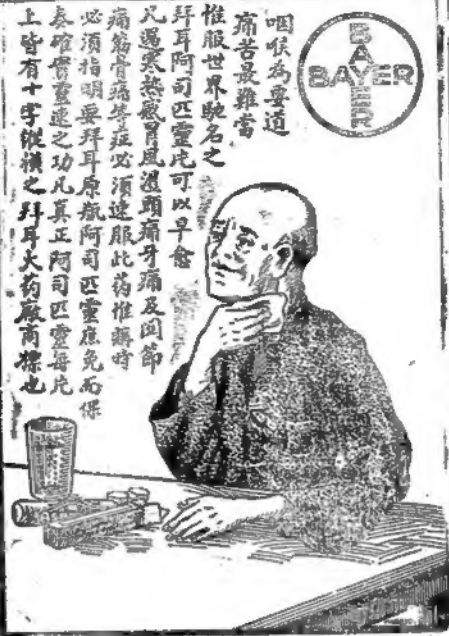 BAYER
BAYER
咽喉為要道
痛苦最難當
惟服世界馳名之
拜耳阿司匹靈片可以早愈
凡遇寒熱感冒風濕頭痛牙痛及関節
痛筋骨痛等症必須速服此药惟購時
必須指明要拜耳原瓶阿司匹靈庶免而保
奏確實靈速之功凡真正阿司匹靈每片
上皆有十字縱橫之拜耳大药厰商標也